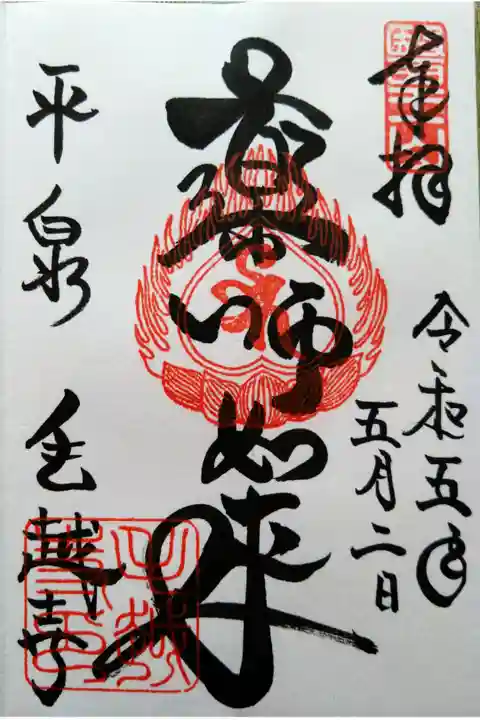 奉拝
令和五年
五月二日
薬師如来
平泉 毛越寺